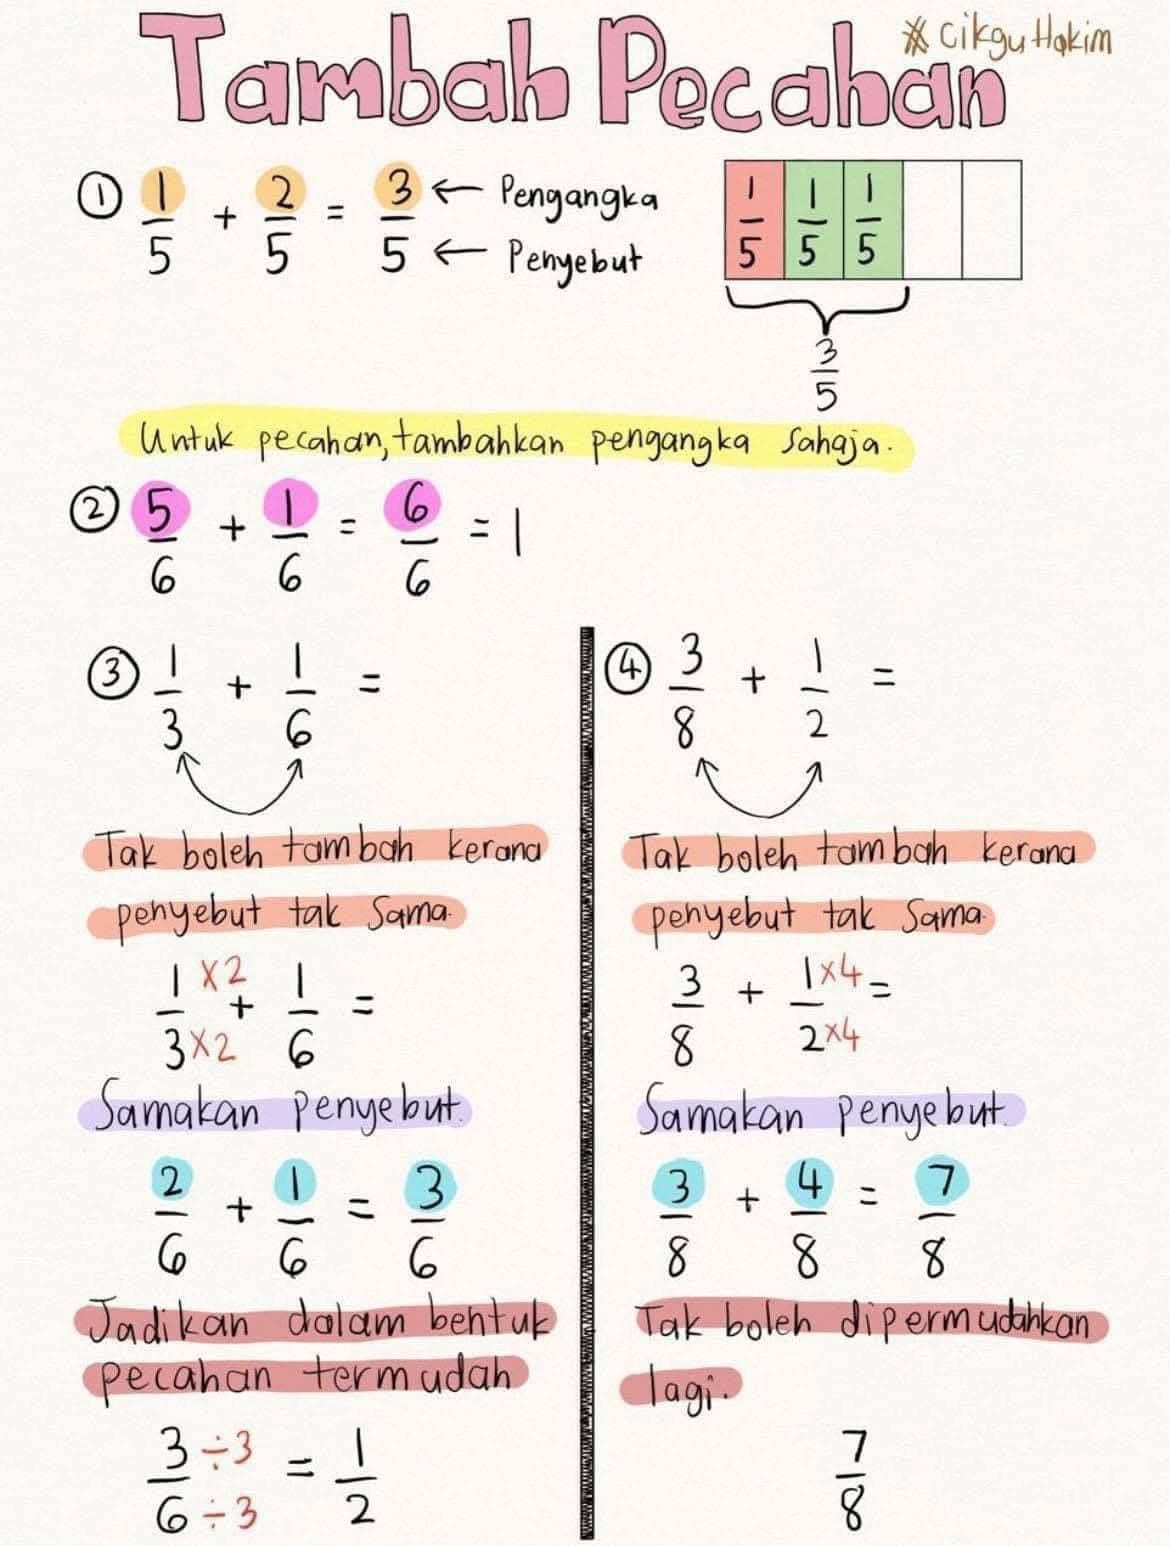 Tambah Pecahan
#CikguHakim
① 1/5 + 2/5 = 3/5 ← Pengangka
← Penyebut
1/5 1/5 1/5
3/5
Untuk pecahan, tambahkan pengangka sahaja.
② 5/6 + 1/6 = 6/6 = 1
③ 1/3 + 1/6 =
Tak boleh tambah kerana
penyebut tak sama.
1×2/3×2 + 1/6 =
Samakan penyebut.
2/6 + 1/6 = 3/6
Jadikan dalam bentuk
pecahan termudah
3÷3/6÷3 = 1/2
④ 3/8 + 1/2 =
Tak boleh tambah kerana
penyebut tak sama.
3/8 + 1×4/2×4 =
Samakan penyebut.
3/8 + 4/8 = 7/8
Tak boleh dipermudahkan
lagi.
7/8